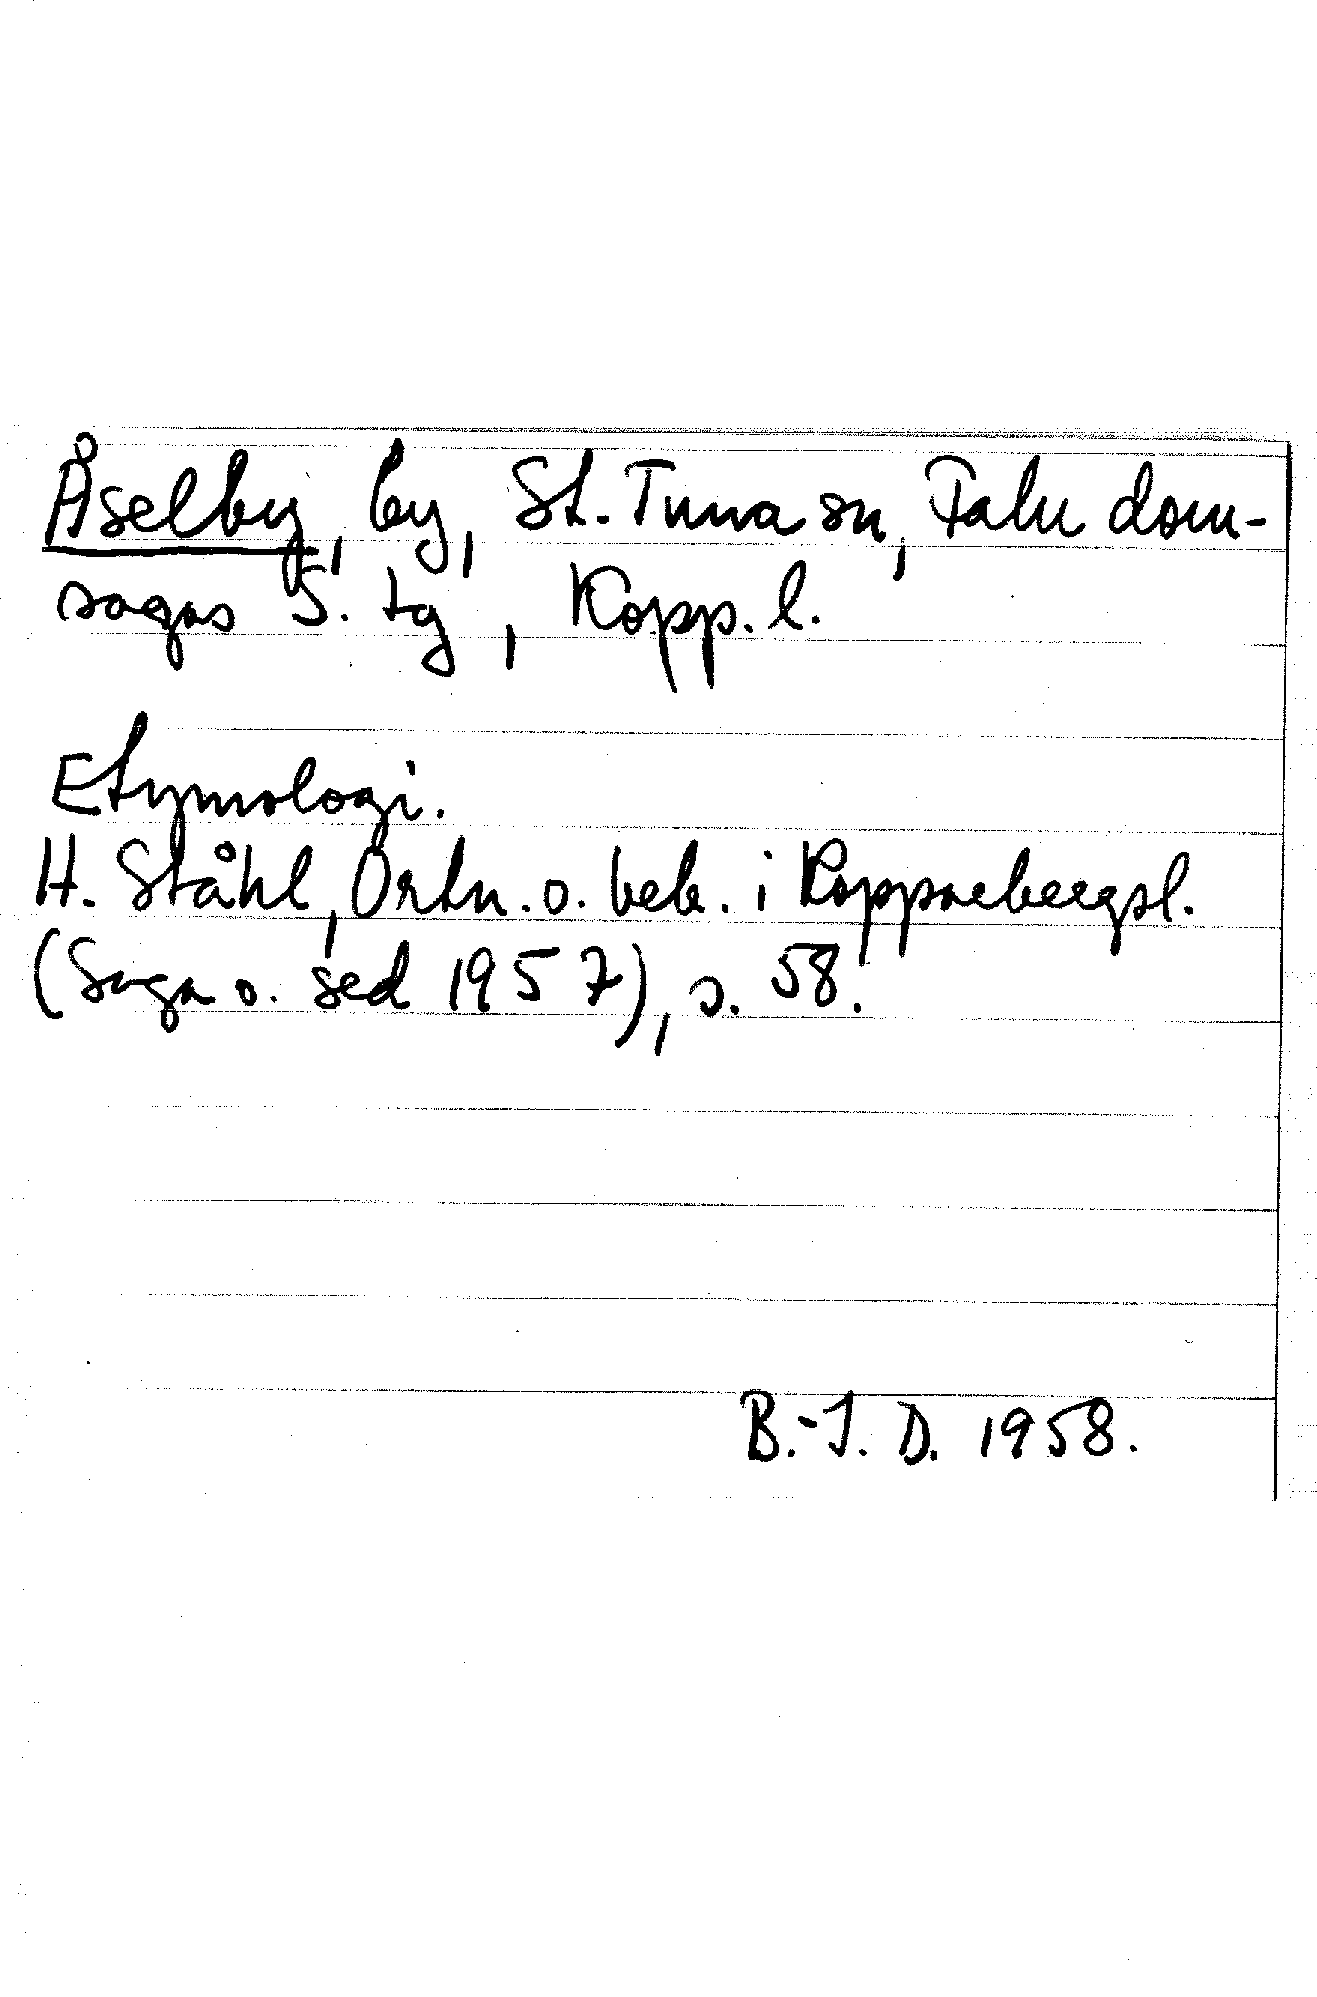 Åselby, by, St. Tuna sn, Falu dom-
sagas S. tg, Kopp. l.
Etymologi.
H. Ståhl, Ortn. o. beb. i Kopparbergsl.
(Saga o. sed 1957), s. 58.
B.-J. D. 1958.